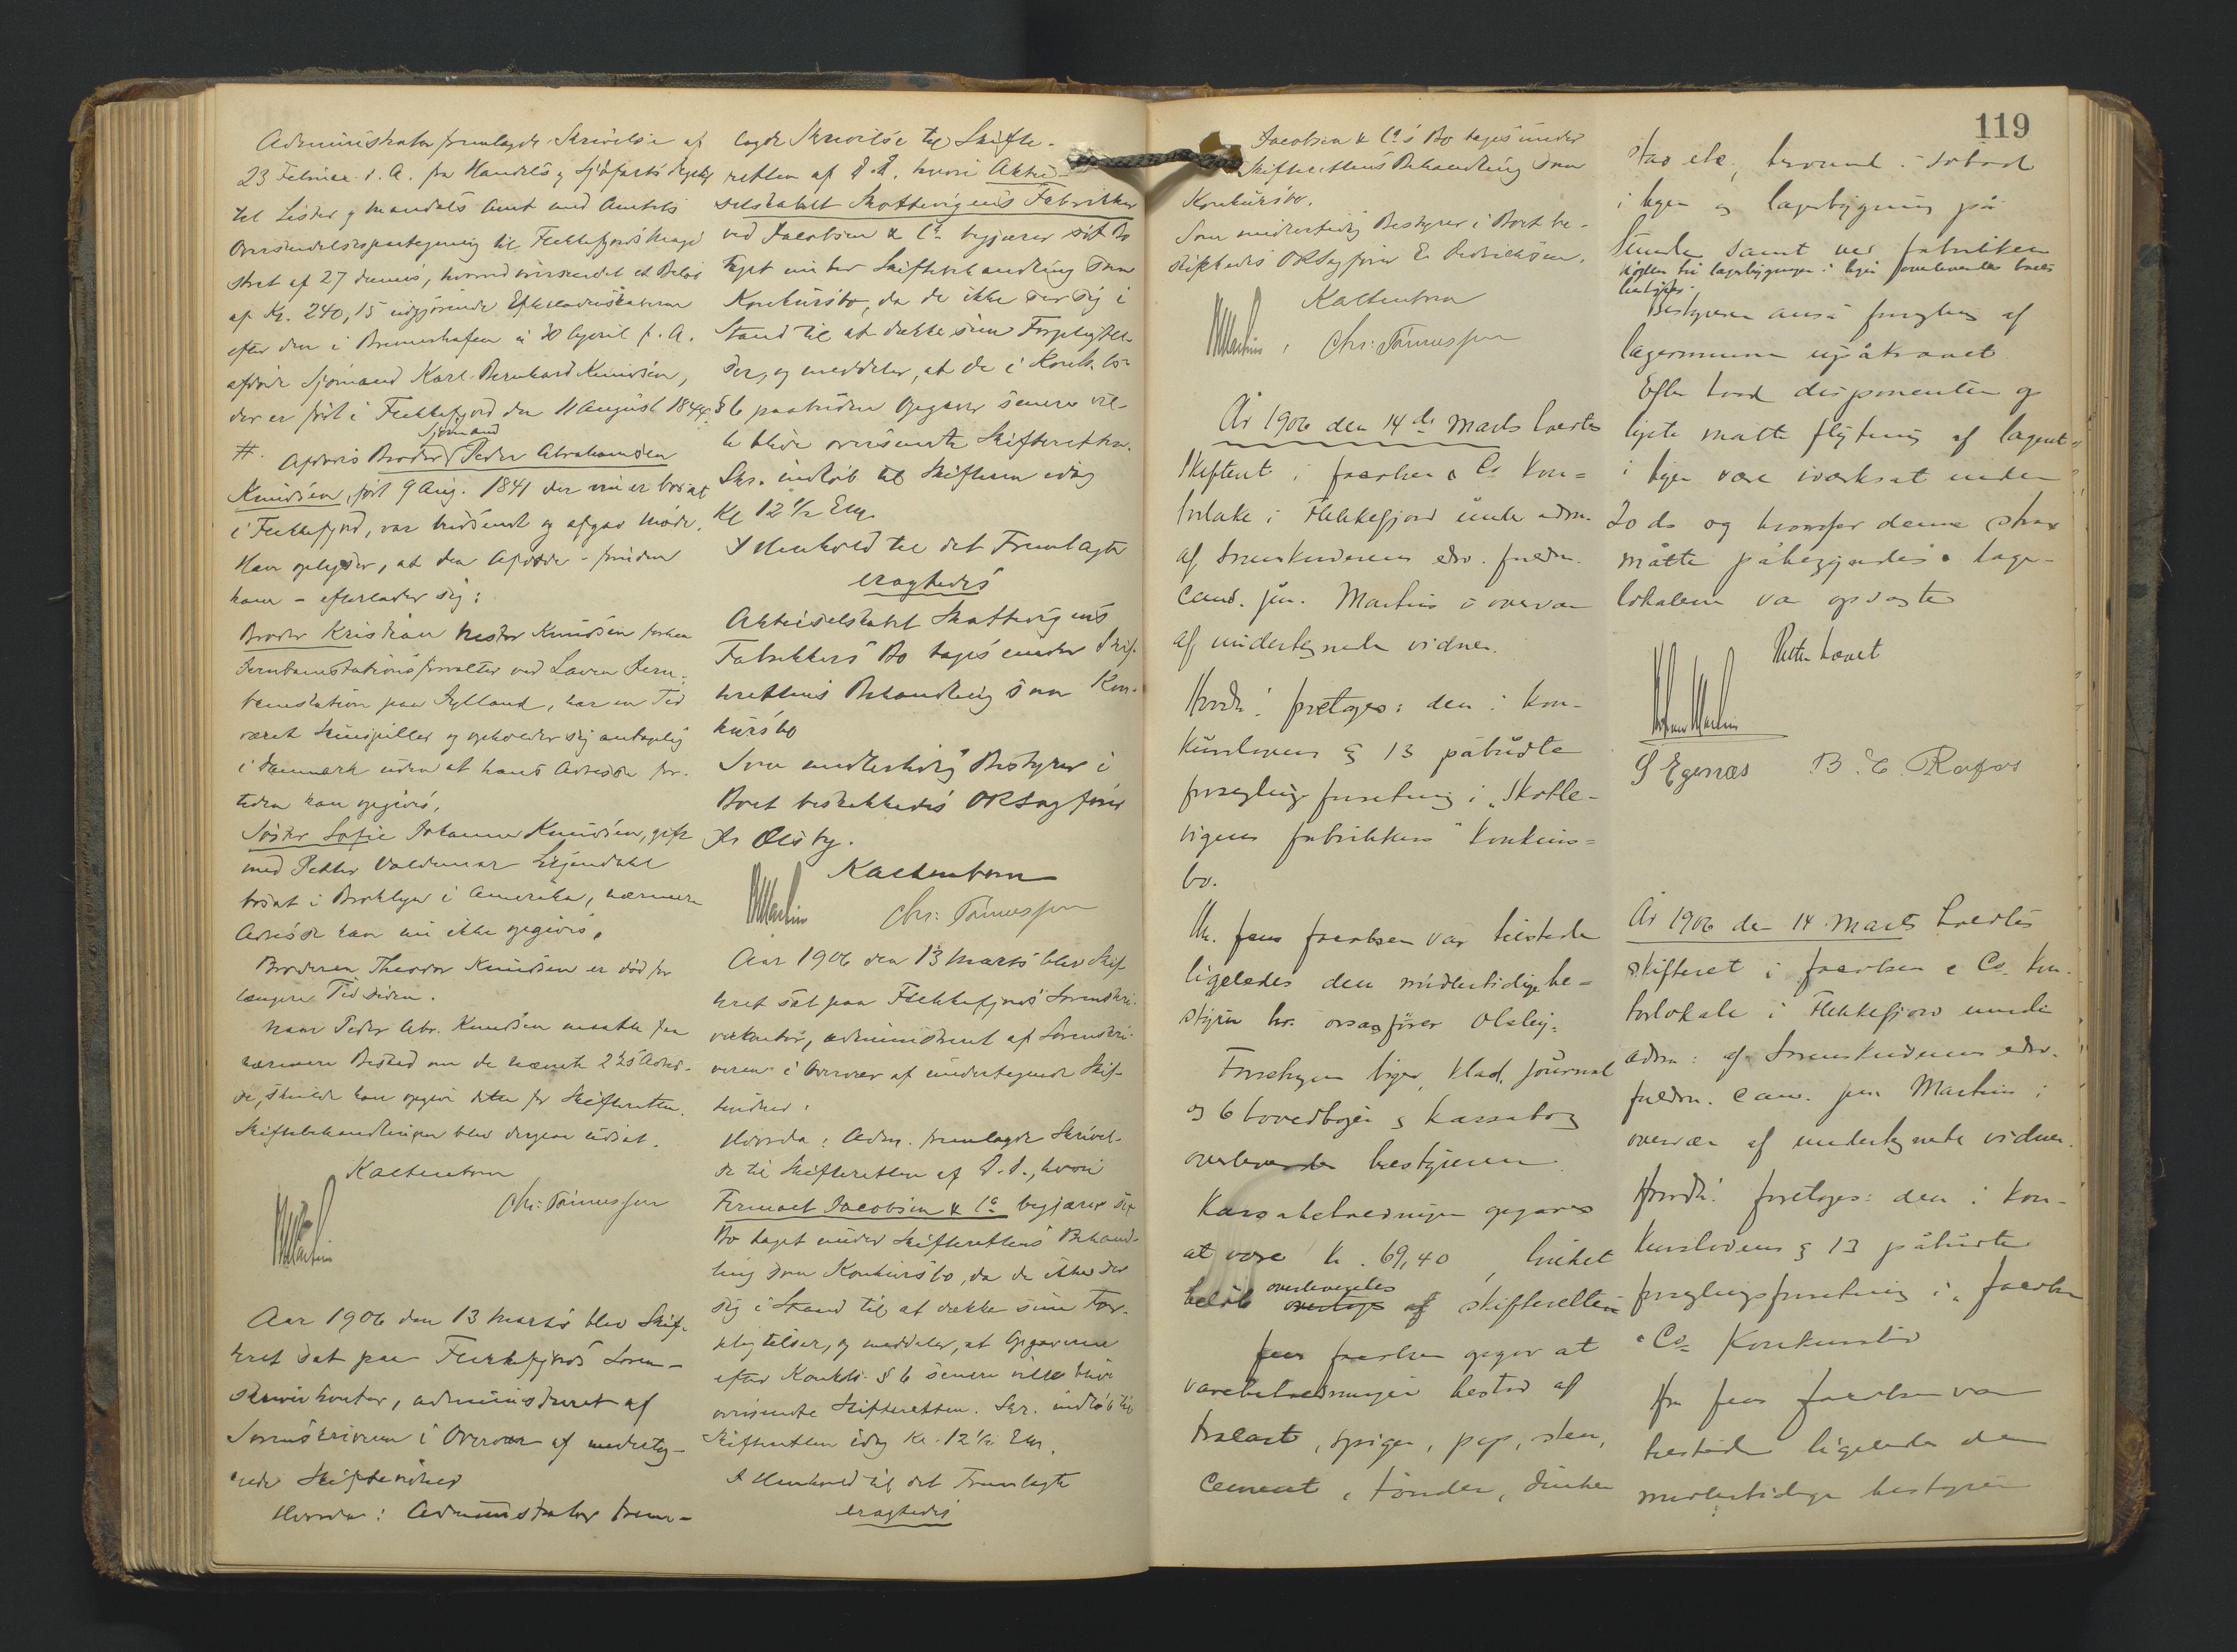 Administrator fremlagde Skrivelse af
23 Februar d. A. fra Handels og Sjøfarts Dept.
til Lister og Mandals Amt med Amtets
Oversendelsespaategning til Flekkefjords Magi
strat af 27 dennes, hvorved oversendes et Beløb
af Kr. 240,15 udgjørende Efterladenskaberne
efter den i Bremerhafen 30 April f. A.
afdøde Sjømand Karl Bernhard Knudsen,
der er født i Flekkefjord den 11 August 1844.
Sjømand
#. Afdødes Broder Peder Abrahamsen
Knudsen, født 9 Aug. 1841 der nu er bosat
i Flekkefjord, var tilstede og afgav Møde.
Han oplyser, at den Afdøde - foruden
ham - efterlader sig:
Broder Kristian Knudsen forhen
Jernbanestationsforvalter ved Laven Jern-
banestation paa Jylland, har en Tid
været Skuespiller og opholder sig antagelig
i Danmark uden at hans Adresse for-
tiden kan opgives,
Søster Sofie Johanne Knudsen, gift
med Petter Valdemar
bosat i Brooklyn i Amerika, nærmere
Adresse kan nu ikke opgives.
Broderen Theodor Knudsen er død for
længere Tid siden.
Naar Peder Abr. Knudsen maatte faa
nærmere Besked om de nævnte 2's Adres-
se, skulde han opgive dette for Skifteretten.
Skiftebehandlingen blev derpaa udsat.
Kaltenborn
Chr: Tønnessen
Martin
Aar 1906 den 13 Marts blev Skif-
teret sat paa Flekkefjords Soren-
skriverkontor, administreret af
Sorenskriveren i Overvær af underteg-
nede Skiftevidner
Hvorda: Administrator frem-
lagde Skrivelse til Skifte-
retten af D. D. hvori Aktie-
selskabet Skottevigens Fabrikker
ved Jacobsen & Co begjærer sit Bo
taget under Skiftebehandling som
Konkursbo, da de ikke ser sig i
Stand til at dække sine Forpligtel-
ser, og meddeler, at de i Konk.lo-
§ 6 paabudne Opgaver senere vil-
le blive oversendte Skifteretten.
Skr. indløb til Skifteretten idag
Kl 12 1/2 Em.
I Henhold til det Fremlagte
eragtedes
Aktieselskabet Skottevigens
Fabrikkers Bo tages under Skif-
terettens Behandling som Kon-
kursbo
Som midlertidig Bestyrer i
Boet beskikkedes ORSagfører
Olsby.
Kaltenborn
Martin Chr: Tønnessen
Aar 1906 den 13 Marts blev Skif-
teret sat paa Flekkefjords Sorenskri-
verkontor, administreret af Sorenskri-
veren i Overvær af undertegnede Skif-
tevidner.
Hvorda: Adm. fremlagde Skrivel-
se til Skifteretten af D. D., hvori
Firmaet Jacobsen & Co begjærer sit
Bo taget under Skifterettens Behand-
ling som Konkursbo, da de ikke ser
sig i Stand til at dække sine For-
pligtelser, og meddeler, at Opgaverne
efter Konkl. § 6 senere ville blive
oversendte Skifteretten. Skr. indløb til
Skifteretten idag Kl. 12 1/2 Em.
I Henhold til det Fremlagte
eragtedes
119
Jacobsen & Co's Bo tages under
Skifterettens Behandling som
Konkursbo.
Som midlertidig Bestyrer i Boet be-
skikkedes ORSagfører E. Didricksen.
Kaltenborn
Martin, Chr: Tønnessen
År 1906 den 14de Marts holdtes
skifteret i Jacobsen & Co kon-
torlokale i Flekkefjord under adm.
af sorenskriverens edsv. fuldm.
cand. jur. Martin i overvær
af undertegnede vidner.
Hvorda: foretoges den i kon-
kurslovens § 13 påbudte
forseglingsforretning i "Skotte-
vigens fabrikkers" konkurs-
bo.
Hr. Jens Jacobsen var tilstede
ligeledes den midlertidige be-
styrer hr. orsagfører Olsby.
Forretningens bøger, klad, journal
og 6 hovedbøger & kassabog
overleveredes bestyreren.
Kassabeholdningen opgaves
at være kr. 69,40, hvilket
beløb overleveredes skifteretten
Jens Jacobsen opgav at
varebeholdningen bestod af
trælast, spiger, pap, sten,
cement, tønder,
stav etc, beroende i
i byen og lagerbygning på
samt ved fabrikken
nøglen til lagerbygningen i byen overleveredes boets
bestyrer.
Bestyreren ansaa forsegling af
lagerrummene upåkrævet.
Efter hvad disponenten op
lyste måtte flytning af lageret
i byen være iværksat inden
20 ds og hvorfor denne strax
måtte påbegyndes. Lager-
lokalerne var opsagte
Petter Lovet
Martin
S Egenæs B. E. Rafos
År 1906 den 14 Marts holdtes
skifteret i Jacobsen & Co. kon-
torlokale i Flekkefjord under
adm: af sorenskriverens edsv.
fuldm. cand. jur. Martin i
overvær af undertegnede vidner.
Hvorda: foretoges den i kon-
kurslovens § 13 påbudte
forseglingsforretning i Jacobsen
& Co. Konkursbo
Hr Jens Jacobsen var
tilstede ligeledes den
midlertidige bestyrer